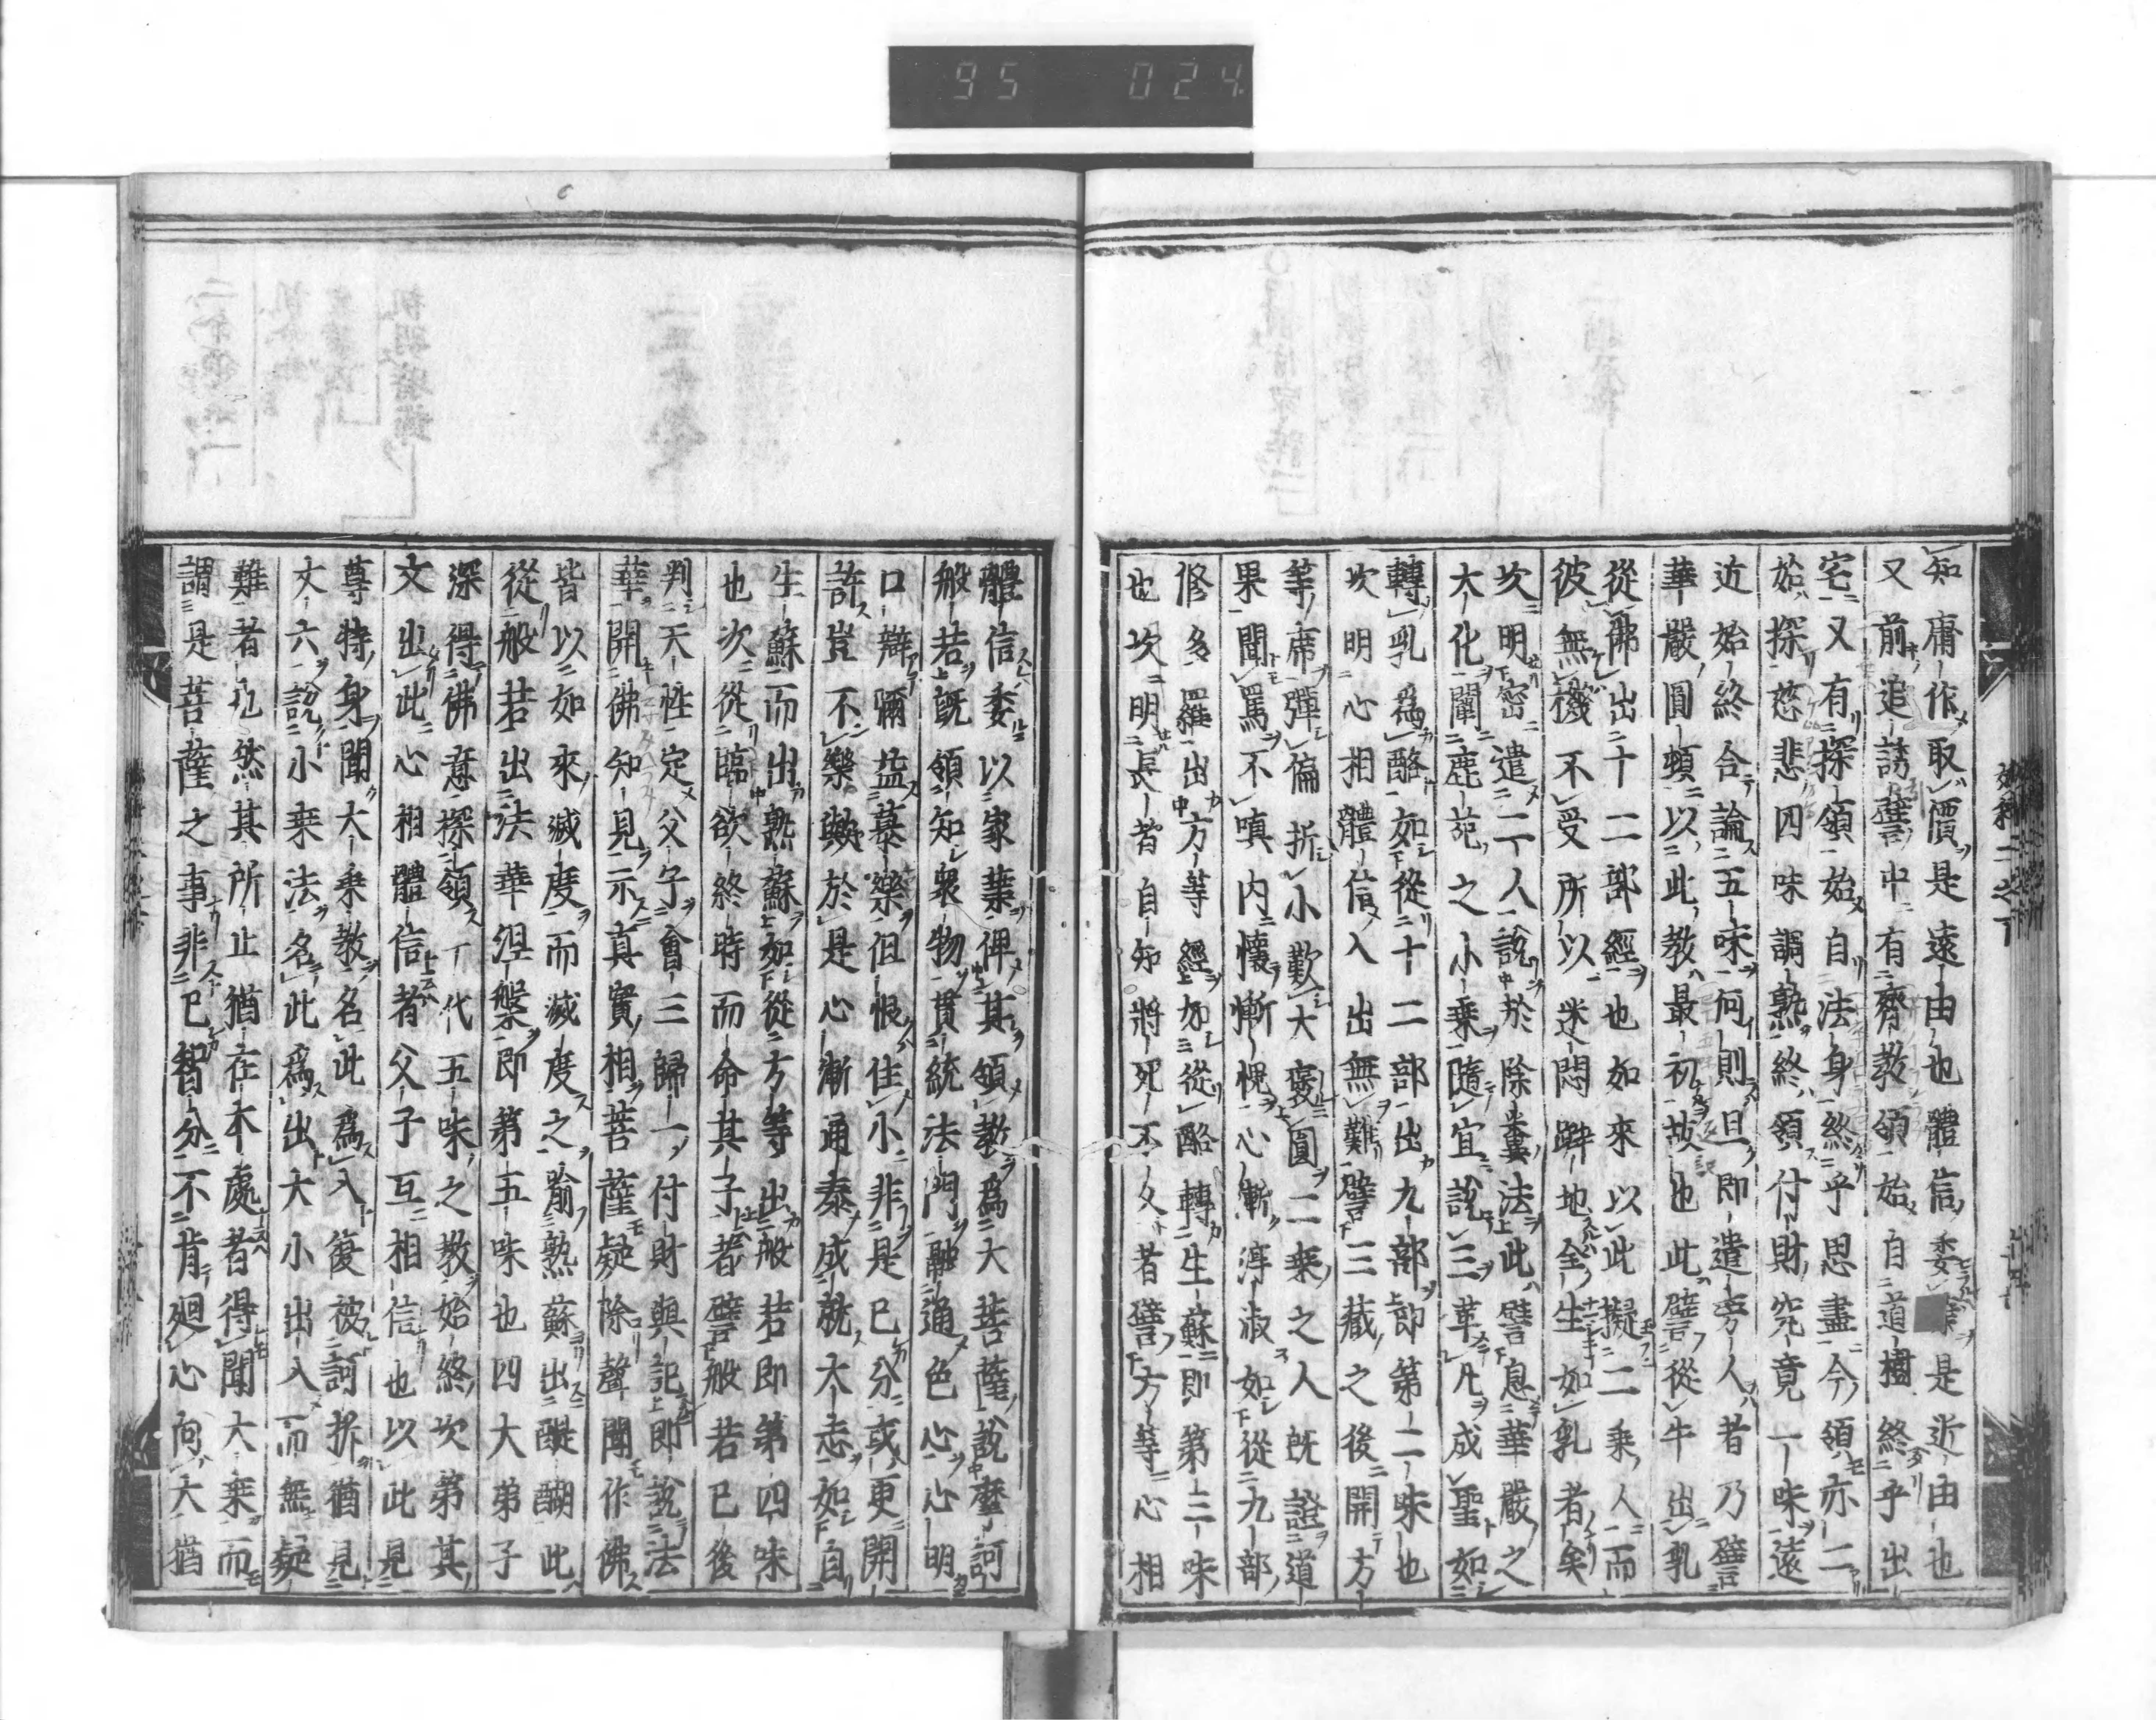 95 024
知庸作取價是遠由也體信委業是近由也
又前追誘譬中有齊教領始自道樹終乎出
宅又有探領始自法身終乎思盡今領亦二
始探慈悲四味調熟終領付財究竟一味遠
近始終合論五味何則旦即遣旁人者乃譬
華嚴圓頓以此教最初故也此譬從牛出乳
從佛出十二部經也如來以此擬二乘人而
彼無機不受所以迷悶躃地全生如乳者矣
次明密遣二人說於除糞法此譬息華嚴之
大化闡鹿苑之小乘隨宜說三革凡成聖如
轉乳爲酪如從十二部出九部即第二味也
次明心相體信入出無難譬三藏之後開方
等席彈偏折小歎大褒圓二乘之人既證道
果聞罵不嗔內懷慚愧心漸淳淑如從九部
修多羅出方等經如從酪轉生蘇即第三味
也次明長者自知將死不久者譬方等心相
妙科二之下
體信委以家業俾其領教爲大菩薩說摩訶
般若既領知衆物貫統法門融通色心心明
口辯彌益慕樂但恨住小非是已分或更開
許豈不樂歟於是心漸通泰成就大志如自
生蘇而出熟蘇如從方等出般若即第四味
也次從臨欲終時而命其子者譬般若已後
判天性定父子會三歸一付財與記即說法
華開佛知見示真實相菩薩疑除聲聞作佛
皆以如來滅度而滅度之喻熟蘇出醍醐此
從般若出法華涅槃即第五味也四大弟子
深得佛意探領一代五味之教始終次第其
文出此心相體信者父子互相信也以此見
尊特身聞大乘教名此爲入復被訶折猶見
丈六說小乘法名此爲出大小出入而無疑
難者也然其所止猶在本處者得聞大乘而
謂是菩薩之事非已智分不肯廻心向大猶